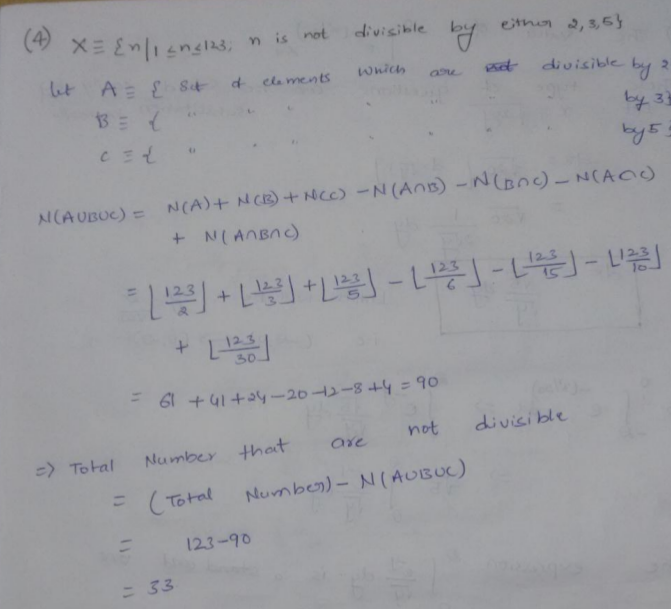 (4) X ≡ {n | 1 ≤ n ≤ 123, n is not divisible by either 2,3,5}
let A ≡ { set of elements which are divisible by 2
B ≡ { " " " " " " by 3}
C ≡ { " " " " " " by 5}
N(A∪B∪C) = N(A) + N(B) + N(C) - N(A∩B) - N(B∩C) - N(A∩C)
+ N(A∩B∩C)
= ⌊123/2⌋ + ⌊123/3⌋ + ⌊123/5⌋ - ⌊123/6⌋ - ⌊123/15⌋ - ⌊123/10⌋
+ ⌊123/30⌋
= 61 + 41 + 24 - 20 - 12 - 8 + 4 = 90
=> Total Number that are not divisible
= (Total Number) - N(A∪B∪C)
= 123-90
= 33